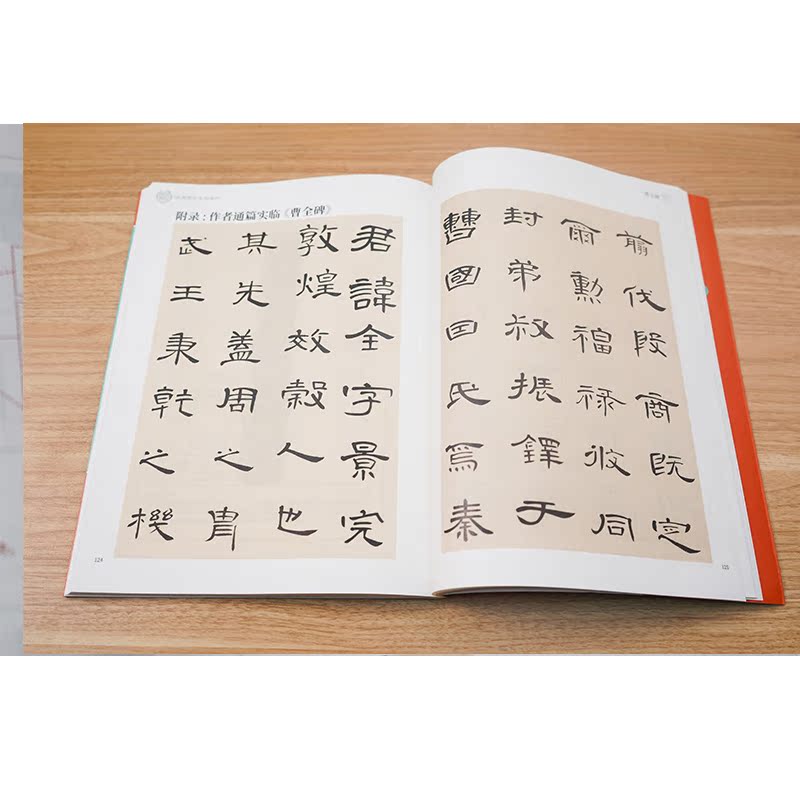 附录：作者通篇实临《曹全碑》
君諱全字景完
敦煌效穀人也
其先蓋周之冑
武王秉乾之機
124
翦伐殷商既定
爾勲福祿攸同
封弟叔振鐸于
曹國因氏焉秦
125